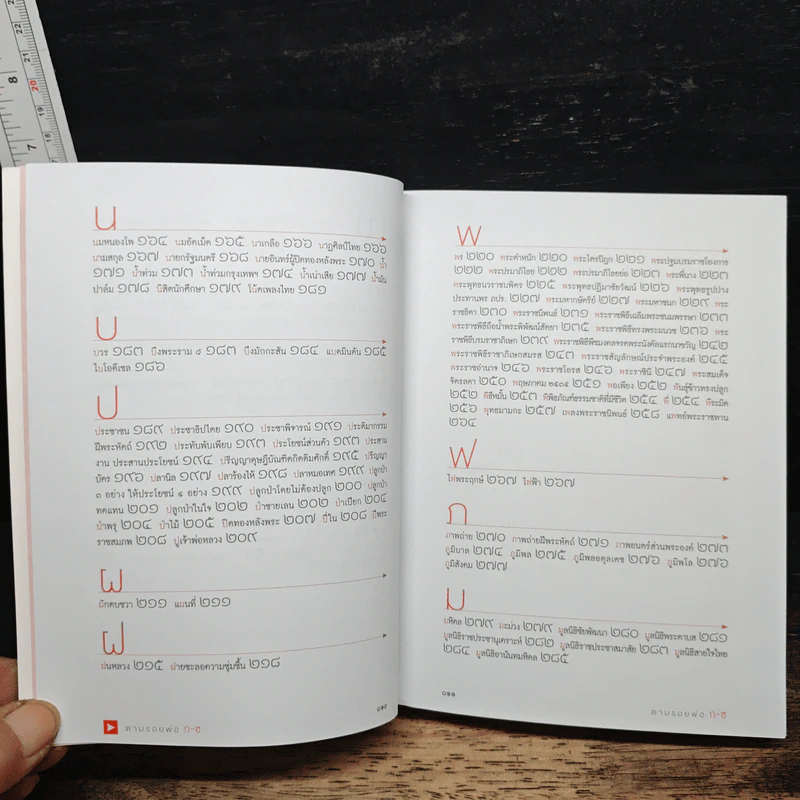 น
นมหนองโพ ๑๖๔ นมอัดเม็ด ๑๖๕ นาเกลือ ๑๖๖ นาฏศิลป์ไทย ๑๖๖
นามสกุล ๑๖๗ นายกรัฐมนตรี ๑๖๘ นายอินทร์ผู้ปิดทองหลังพระ ๑๗๐ น้ำ
๑๗๑ น้ำท่วม ๑๗๓ น้ำท่วมกรุงเทพฯ ๑๗๔ น้ำเน่าเสีย ๑๗๗ น้ำมัน
ปาล์ม ๑๗๘ นิสิตนักศึกษา ๑๗๙ โน้ตเพลงไทย ๑๘๑
บ
บวร ๑๘๓ บึงพระราม ๙ ๑๘๓ บึงมักกะสัน ๑๘๔ แบดมินตัน ๑๘๕
ไบโอดีเซล ๑๘๖
ป
ประชาชน ๑๘๙ ประชาธิปไตย ๑๙๐ ประชาพิจารณ์ ๑๙๑ ประติมากรรม
ฝีพระหัตถ์ ๑๙๒ ประทับพับเพียบ ๑๙๓ ประโยชน์ส่วนตัว ๑๙๓ ประสาน
งาน ประสานประโยชน์ ๑๙๔ ปริญญาดุษฎีบัณฑิตกิตติมศักดิ์ ๑๙๕ ปริญญา
บัตร ๑๙๖ ปลานิล ๑๙๗ ปลาร้องไห้ ๑๙๘ ปลาหมอเทศ ๑๙๙ ปลูกป่า
๓ อย่าง ให้ประโยชน์ ๔ อย่าง ๑๙๙ ปลูกป่าโดยไม่ต้องปลูก ๒๐๐ ปลูกป่า
ทดแทน ๒๐๑ ปลูกป่าในใจ ๒๐๒ ป่าชายเลน ๒๐๒ ป่าเปียก ๒๐๔
ป่าพรุ ๒๐๔ ป่าไม้ ๒๐๕ ปิดทองหลังพระ ๒๐๗ ปี่ใน ๒๐๘ ปีพระ
ราชสมภพ ๒๐๘ ปู่เจ้าพ่อหลวง ๒๐๙
ผ
ผักตบชวา ๒๑๑ แผนที่ ๒๑๑
ฝ
ฝนหลวง ๒๑๕ ฝายชะลอความชุ่มชื้น ๒๑๘
๐๑๐
ตามรอยพ่อ ก-ฮ
พ
พร ๒๒๐ พระตำหนัก ๒๒๐ พระไตรปิฎก ๒๒๑ พระปฐมบรมราชโองการ
๒๒๒ พระปรมาภิไธย ๒๒๒ พระปรมาภิไธยย่อ ๒๒๓ พระพี่นาง ๒๒๓
พระพุทธนวราชบพิตร ๒๒๕ พระพุทธปฏิมาชัยวัฒน์ ๒๒๖ พระพุทธรูปปาง
ประทานพร ภปร. ๒๒๗ พระมหากษัตริย์ ๒๒๗ พระมหาชนก ๒๒๙ พระ
ราชธิดา ๒๓๐ พระราชนิพนธ์ ๒๓๑ พระราชพิธีเฉลิมพระชนมพรรษา ๒๓๓
พระราชพิธีถือน้ำพระพิพัฒน์สัตยา ๒๓๕ พระราชพิธีทรงพระผนวช ๒๓๖ พระ
ราชพิธีบรมราชาภิเษก ๒๓๙ พระราชพิธีพืชมงคลจรดพระนังคัลแรกนาขวัญ ๒๔๒
พระราชพิธีราชาภิเษกสมรส ๒๔๓ พระราชสัญลักษณ์ประจำพระองค์ ๒๔๕
พระราชอำนาจ ๒๔๖ พระราชโอรส ๒๔๖ พระราชินี ๒๔๗ พระสมเด็จ
จิตรลดา ๒๕๐ พฤษภาคม ๒๕๓๕ ๒๕๑ พอเพียง ๒๕๒ พันธุ์ข้าวทรงปลูก
๒๕๒ พิธีหมั้น ๒๕๓ พิพิธภัณฑ์ธรรมชาติที่มีชีวิต ๒๕๔ พี่ ๒๕๔ พีระมิด
๒๕๖ พุทธมามกะ ๒๕๗ เพลงพระราชนิพนธ์ ๒๕๘ แพทย์พระราชทาน
๒๖๔
ฟ
ไฟพระฤกษ์ ๒๖๗ ไฟฟ้า ๒๖๗
ภ
ภาพถ่าย ๒๗๐ ภาพถ่ายฝีพระหัตถ์ ๒๗๑ ภาพยนตร์ส่วนพระองค์ ๒๗๓
ภูมิบาล ๒๗๔ ภูมิพล ๒๗๕ ภูมิพลอดุลเดช ๒๗๖ ภูมิพโล ๒๗๖
ภูมิสังคม ๒๗๗
ม
มหิดล ๒๗๙ มะม่วง ๒๗๙ มูลนิธิชัยพัฒนา ๒๘๐ มูลนิธิพระดาบส ๒๘๑
มูลนิธิราชประชานุเคราะห์ ๒๘๒ มูลนิธิราชประชาสมาสัย ๒๘๓ มูลนิธิสายใจไทย
๒๘๔ มูลนิธิอานันทมหิดล ๒๘๕
๐๑๑
ตามรอยพ่อ ก-ฮ
8
7
22
21
20
19
18